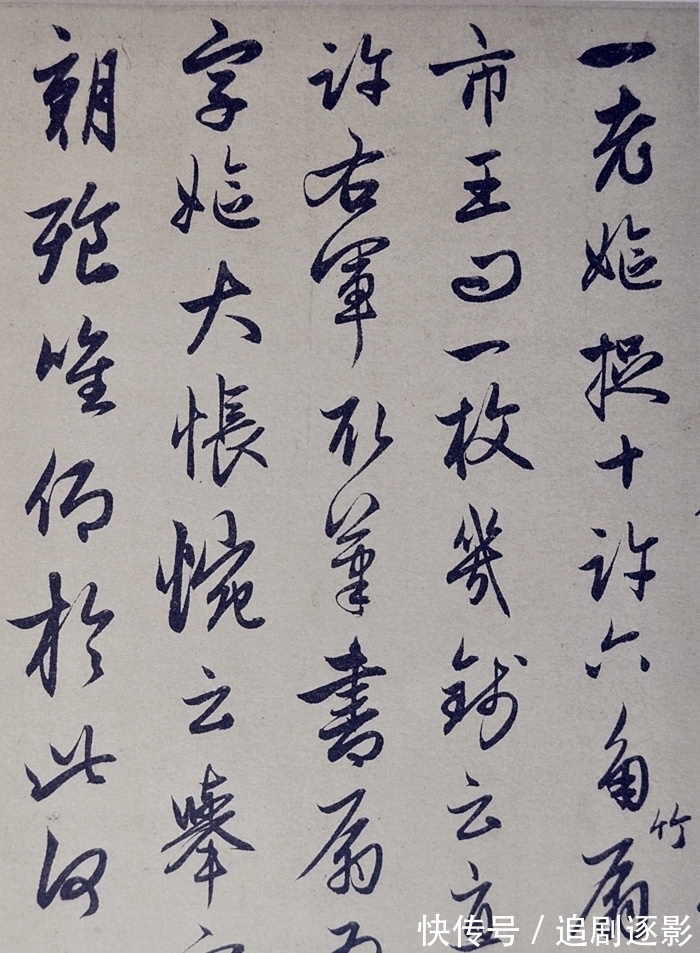 一老嫗捉十許六角竹扇
市王問一枚幾錢云直
許右軍取筆書扇
字嫗大悵惋云舉
朝飱唯仰於此何
快传号 / 追剧逐影